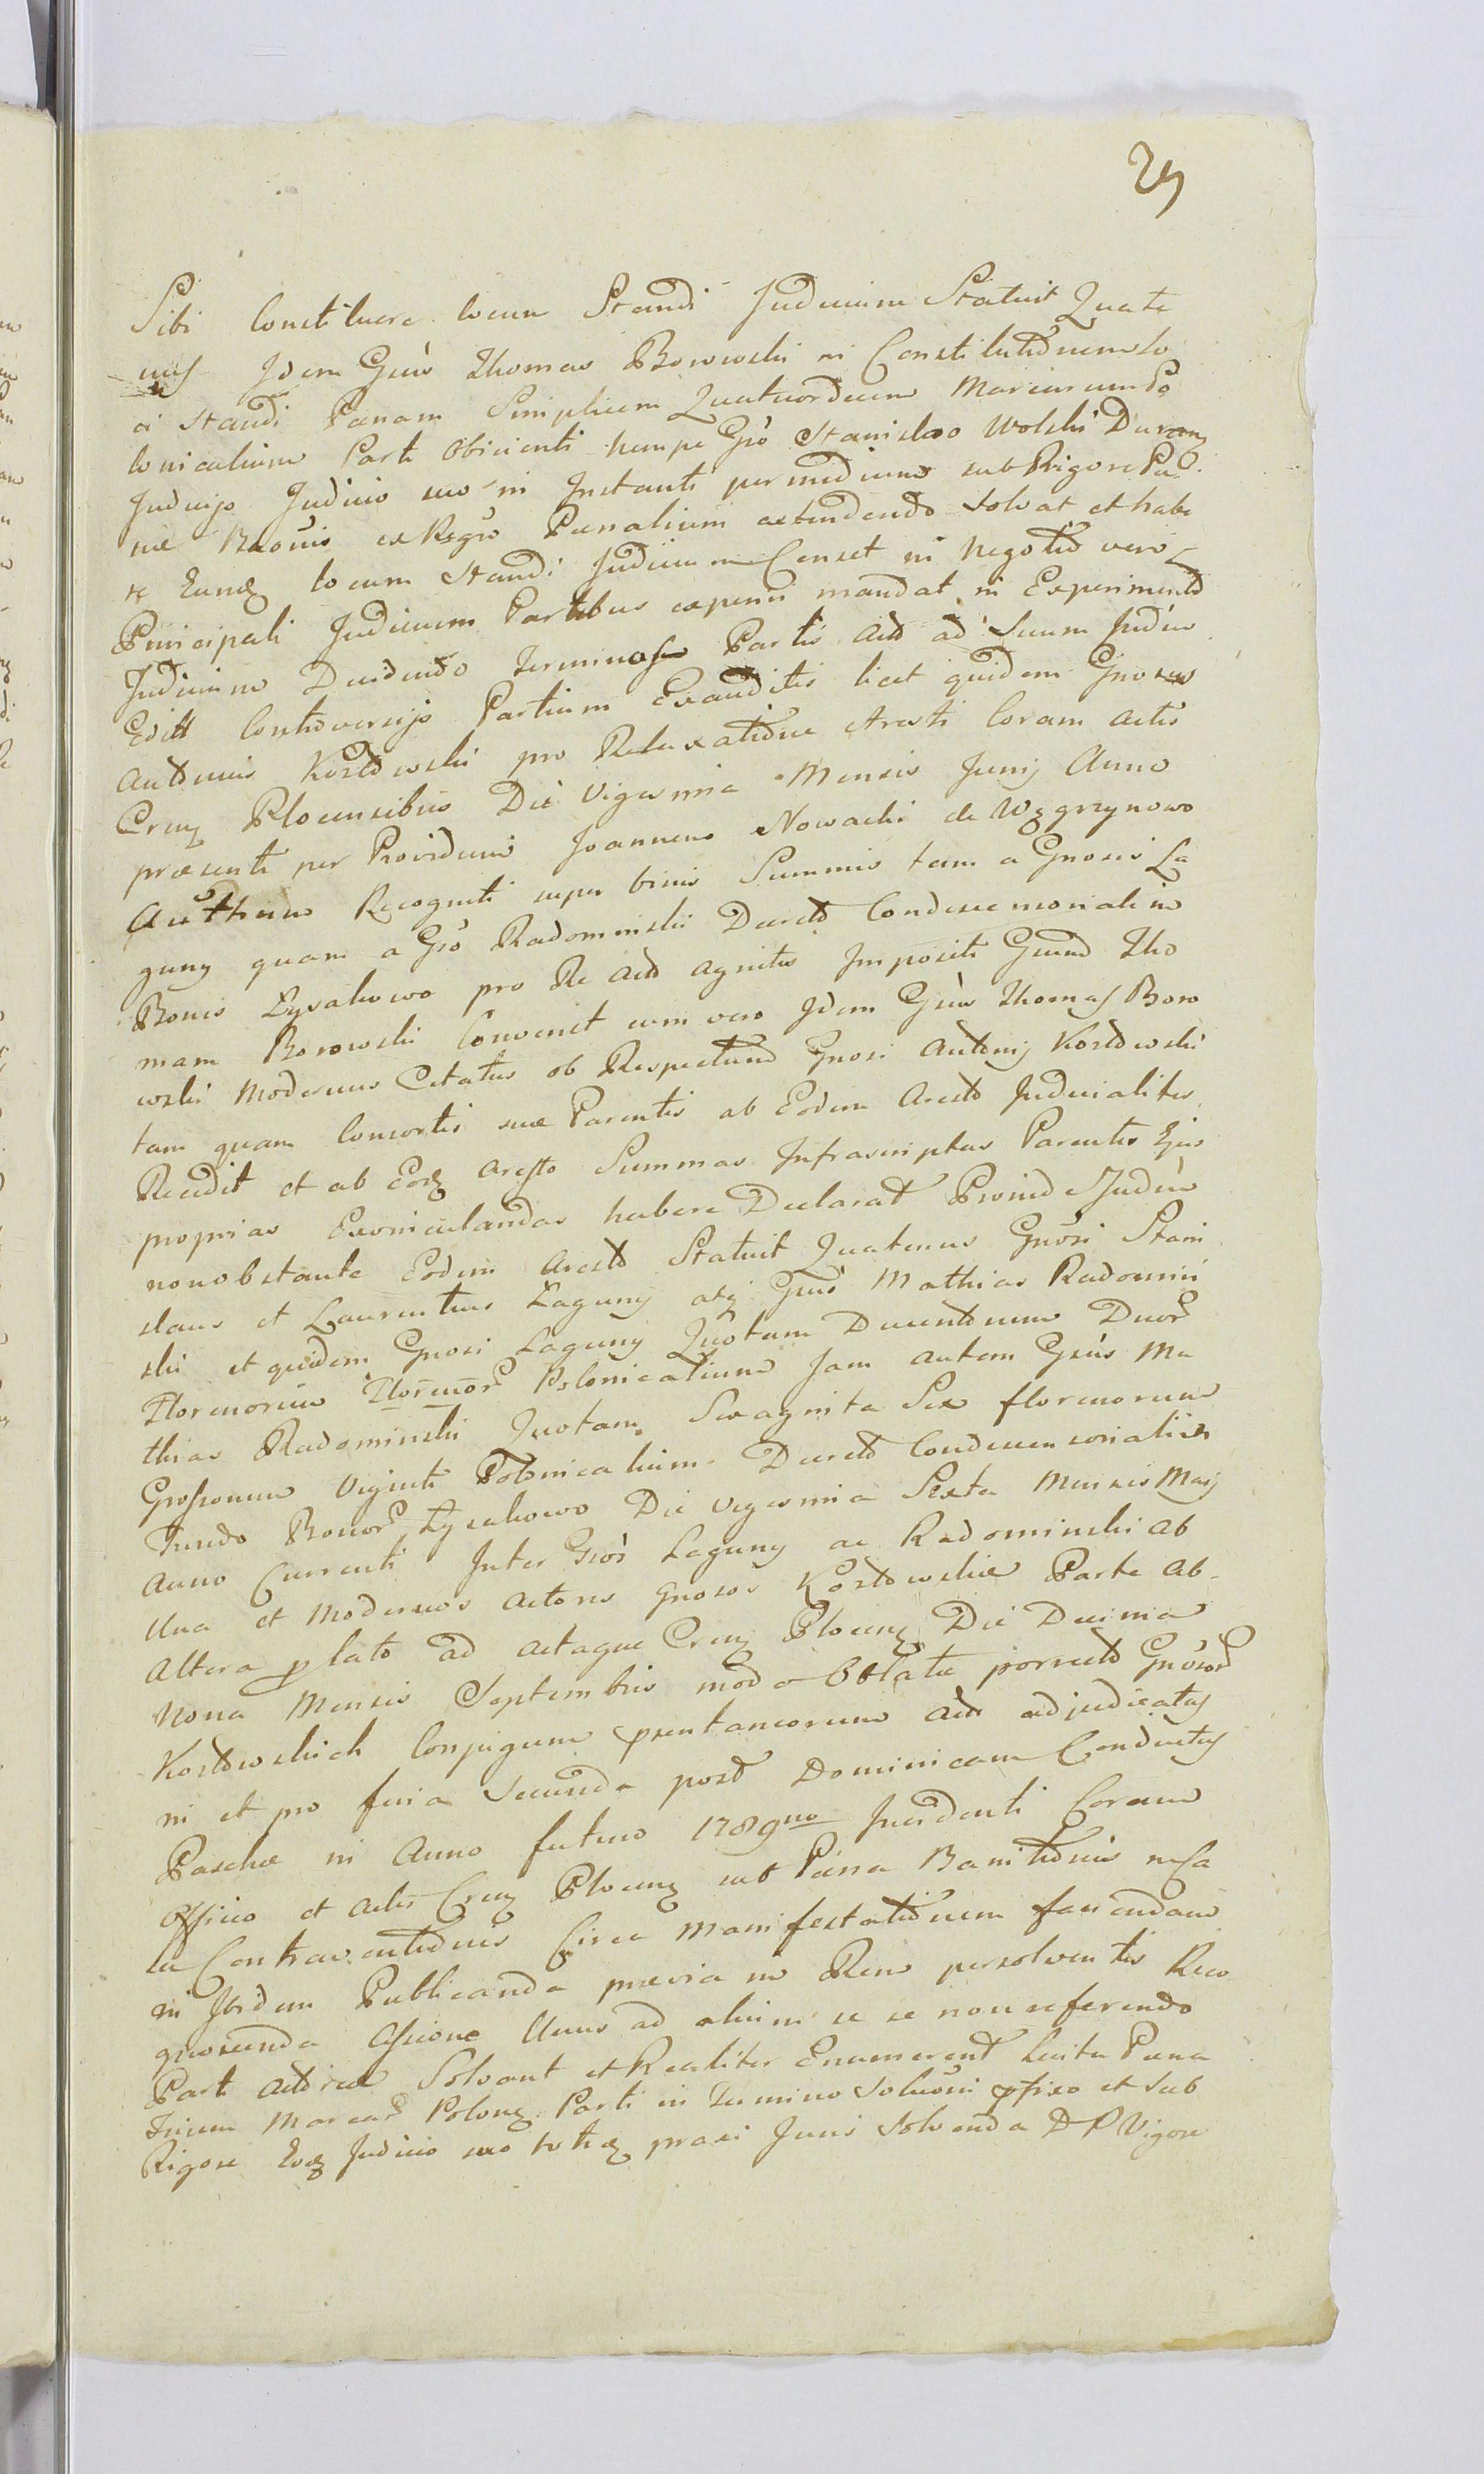 29
Sibi Constituere locum Standi Judicium Statuit Quate
nus Idem Gsus Thomas Borowski in Constitutionem lo
ci standi Pœnam Simplicem Quatuordecim Marcarum Po
lonicalium Parti Obicienti nempe Gso Stanislao Wolski
Judicijo Judicio suo in Instanti per medium sub Rigore Pœ
næ Baõnis ex Regro Pœnalium extendendo Solvat et habe
locum Standi Judicium Censet in Negotio vero
Principali Judicium Partibus experiri mandat in Experimento
Judicium Partis ad Suum
Controversijs Partium Exauditis licet quidem Gnosus
Antonius Kostowski pro Relaxatione Aresti Coram actis
Crenz Plocensibus Die Vigesima Mensis Junij Anno
præsenti per Providum Joannem Nowacki de Węgrzynowo
Recogniti super binis Summis tam a Gnosis La
guny quam a Gso Radominski Decreto Condescensoriali in
Bonis Łysakowo pro Re acto agnitis Impositi Gsum Tho
mam Borowski Convenit cum vero Idem Gsus Thomas Boro
wski Modernus Citatus ob Respectum Gnosi Antonij Kostowski
tam quam Consortis suæ Parentis ab Eodem Aresto Judicialiter
Recedit et ab Eodz Aresto Summas Infrascriptas Parentis Ejus
proprias Exvinculandas habere Declarat Proinde Judiu
nonobstante Eodem Aresto Statuit Quatenus Gnosi Stani
slaus et Laurentius Łaguny atq Gsus Mathias Radomiń
ski et quidem Gnosi Laguny Quotam Ducentorum Duor
Florenorum Florenor Polonicalium Jam autem Gsus Ma
thias Radominski Quotam Sexaginta Sex florenorum
Grossorum Viginti Polonicalium Decreto Condescensoriali in
Fundo Bonor Łysakowo Die vigesima Sexta Mensis Maij
Anno Currenti Inter Gsos Laguny ac Radominski ab
Una et Modernos Actores Gnosos Kostowskie Parte ab
Altera plato ad actaque Crenz Plocenz Die Decima
Nona Mensis Septembris modo Oblatæ porrecto Gnosor
Kostowskich Conjugum psentaneorum acto adjudicatas
in et pro feria Secunda post Dominicam Conductus
Paschæ in Anno futuro 1789no Incidenti Coram
Officio et Actis Crenz Plocenz sub Pœna Banitionis in Ca
su Contraventionis Circa Manifestationem faciendam
in Ibidem Publicanda prævia in Rem persolventis Reco
gnoscenda Cessione Unus ad alium se se non referendo
Parti Actoreæ Solvant et Realiter Enumerent Luita Pœna
Trium Marcar Polonz Parti in Termino Soluõni pfixo et Sub
Rigore Eodz Judicio suo praxi Juris Solvenda D P Vigore